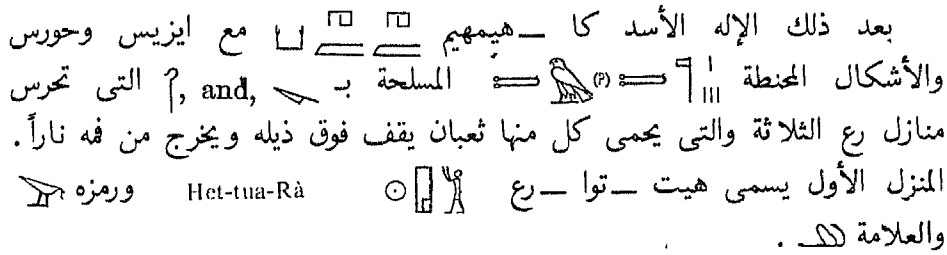 بعد ذلك الإله الأسد كا ــ هيمهيم 𓉔 𓐝 𓉔 𓐝 𓂓 مع ايزيس وحورس
والأشكال المحنطة 𓊹 𓏪 (?) المسلحة بـ , and, التى تحرس
منازل رع الثلاثة والتى يحمى كل منها ثعبان يقف فوق ذيله ويخرج من فمه ناراً .
المنزل الأول يسمى هيت ــ توا ــ رع 𓀢 𓉗 𓇳 Het-tua-Rà ورمزه
والعلامة .